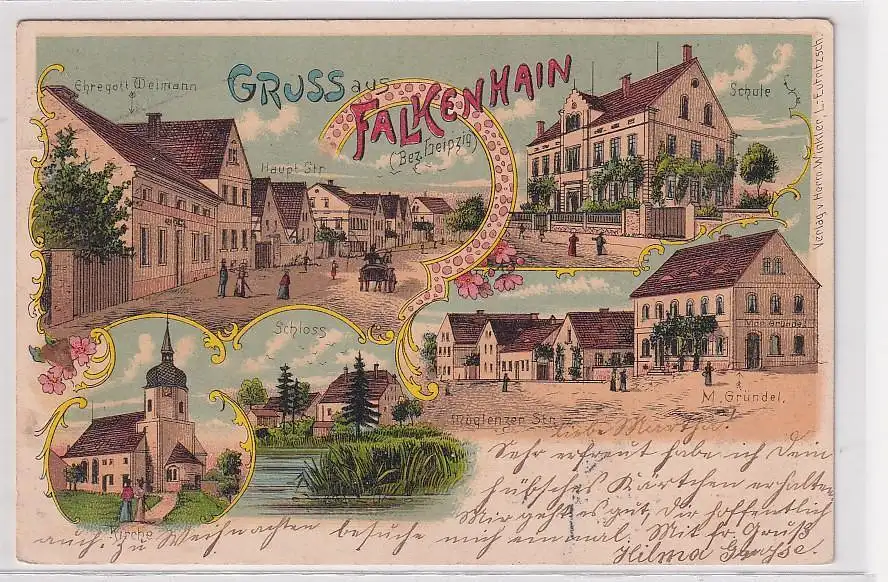 GRUSS aus
FALKENHAIN
(Bez. Leipzig)
Ehregott Weimann
Haupt Str.
Schule
Verlag v. Herm. Winkler, L.-Eutritzsch.
Schloss
Kirche
Müglenzer Str.
Max Gründel
M. Gründel.
Liebe Martha!
Sehr erfreut habe ich Dein
hübsches Kärtchen erhalten
Mir geht es gut, Dir hoffentlich
auch. Zu Weihnachten besuche mich einmal. Mit fr. Gruß
Hilma